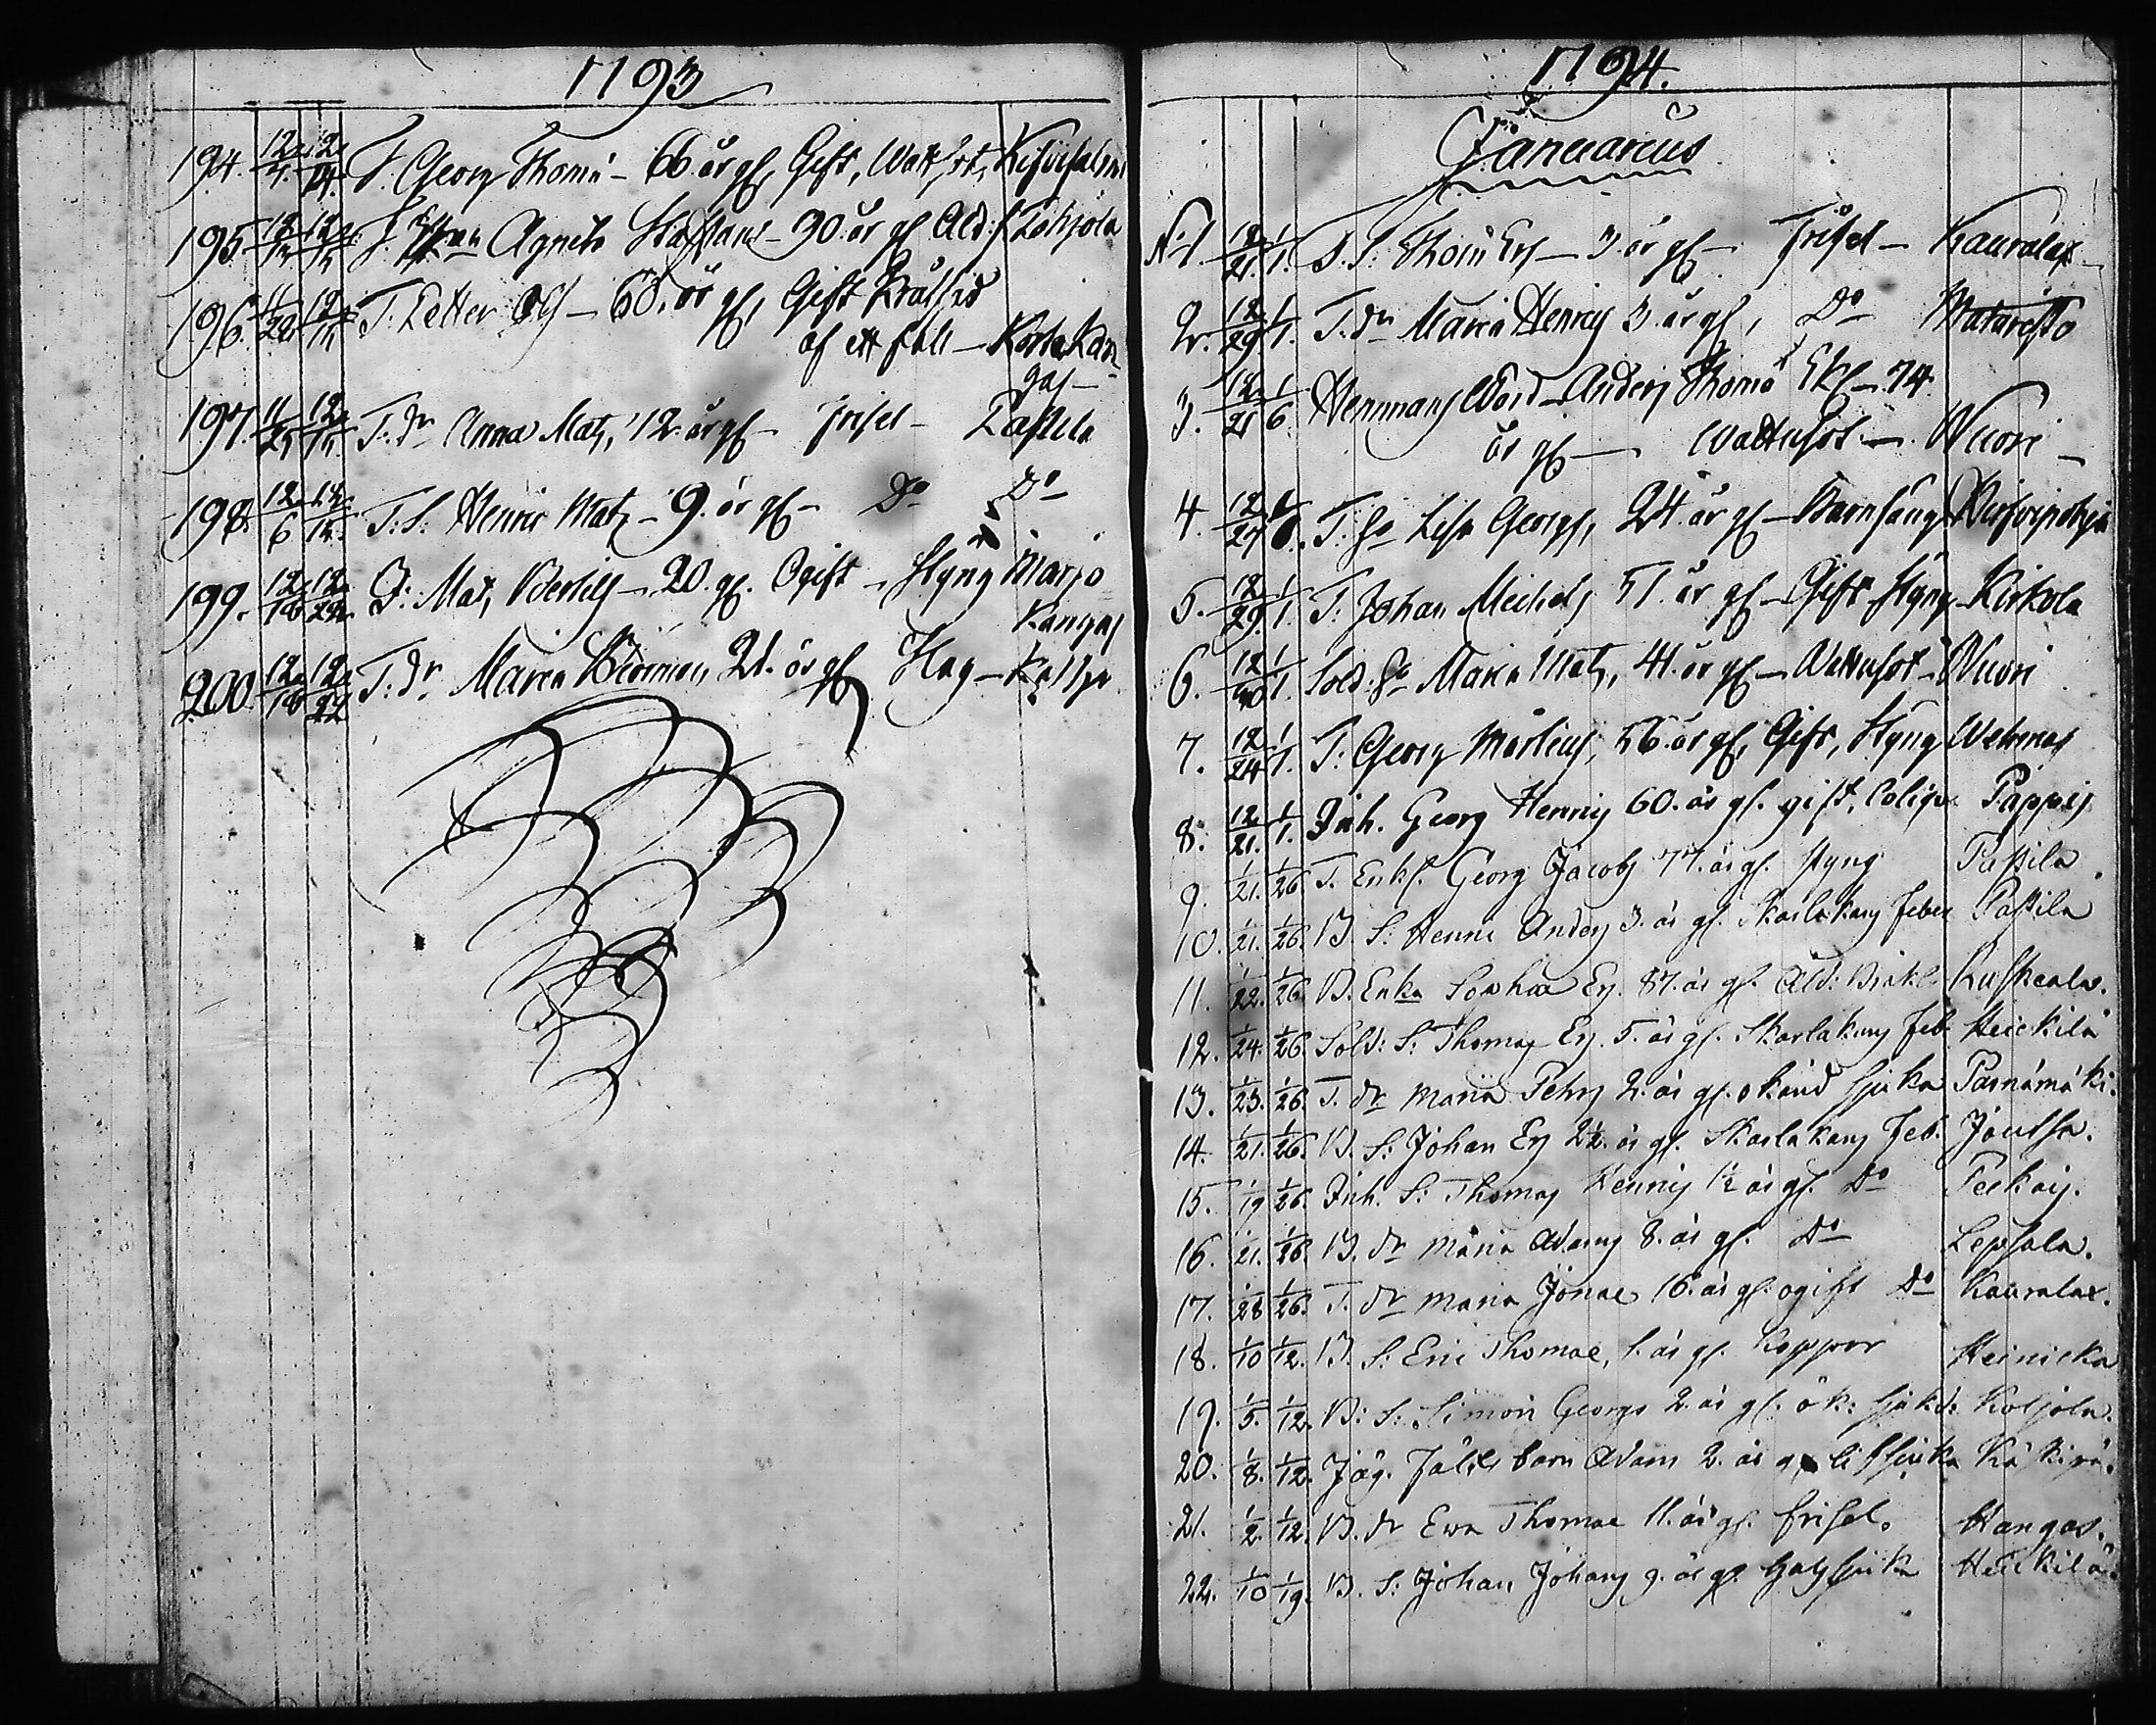 1793
194. 12/7. 12/14. T. Georg Thomæ - 66. år gl, Gift, Wattsot,
195. 12/ 12/ Agneta Staffans - 90. år gl Åld: Pohjola
196. 11/28 12/15 T. Petter Ols - 60. år gl, Gift Bråkad
af ett fall - Kortekan-
gas -
197. 11/25 12/15. T: dr Anna Mats, 12. år gl - frisel - Passila
198. 12/6 12/15. T: S: Henric Mats - 9. år gl - Do Do
199. 12/18 12/22. I: Mats Bertils - 20. gl. Ogift - Styng Marjo
kangas
200. 12/18 12/22 T: dr Maria 21. år gl Slag -
1794.
Januarius
N:1. 12/21. 1/1. T. S: Thom Ers - 3. år gl - Frisel - Kauralax -
2. 12/29 1/1. T. dr Maria Henrics 3. år gl, Do
3. 12/21 1/6. Anders Thomæ Eks - 74.
år gl - Wattusot - Wuori -
4. 12/27 1/6. T: ha Lisa Georgs, 24. år gl - Barnsäng
5. 12/29. 1/1. T: Johan Michels 51. år gl - Gift Styng - Kirkola
6. 12/30 1/1. Sold: ha Maria Mats, 41. år gl - Wattusot - Wuori
7. 12/24 1/1. T: Georg Mårtens, 56. år gl, Gift, Styng
8. 12/21. 1/1. Inh. Georg Henrics 60. år gl. gift, Colique Pappis
9. 1/21. 1/26. T. Enkl. Georg Jacobs 77. år gl. styng Passila
10. 1/21. 1/26. B. S: Henric Anders 3. år gl. Skarlakans feber Passila
11. 1/22. 1/26. B. Enka Sophia Ers. 87. år gl. Åld: Bräkl. Ruskeala.
12. 1/24. 1/26. Sold: S: Thomas Ers. 5. år gl. Skarlakans feb. Heickilä
13. 1/23. 1/26. T. dr Maria Pehrs 2. år gl. okänd sjuka Parnämäki.
14. 1/21. 1/26. B. S: Johan Ers 2 1/2. år gl. Skarlakans feb. Joutsa.
15. 1/19 1/26. Inh. S: Thomas Henrics 1 1/2 år gl. Do Pekais.
16. 1/21. 1/26. B. dr Maria Adams 8. år gl. Do Lepsala.
17. 1/28 1/26. T. dr Maria Jonae 16. år gl. ogift Do Kauralax.
18. 1/10 1/12. B. S: Eric Thomae, 1. år gl. Koppor Heinicka
19. 1/5. 1/12. B: S: Simon Georgs 2. år gl. ok: sjukd: Koljola.
20. 1/8. 1/12. Jäg. barn Adam 2. år g
21. 1/2. 1/12. B. dr Ewa Thomae 11. år gl. frisel. Kangas.
22. 1/10 1/19. B. S: Johan Johans 9. år gl. halssjuka Heickilä.